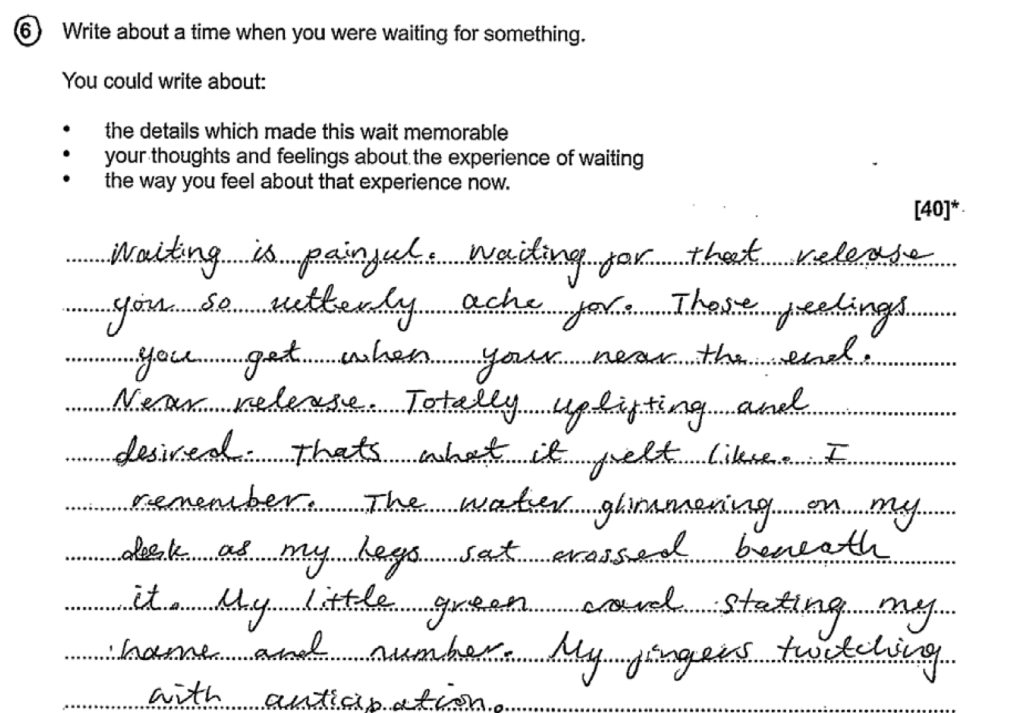 6 Write about a time when you were waiting for something.
You could write about:
• the details which made this wait memorable
• your thoughts and feelings about the experience of waiting
• the way you feel about that experience now.
[40]*
Waiting is painful. Waiting for that release
you so utterly ache for. Those feelings
you get when your near the end.
Near release. Totally uplifting and
desired. Thats what it felt like. I
remember. The water glimmering on my
desk as my legs sat crossed beneath
it. My little green card stating my
name and number. My fingers twitching
with anticipation.